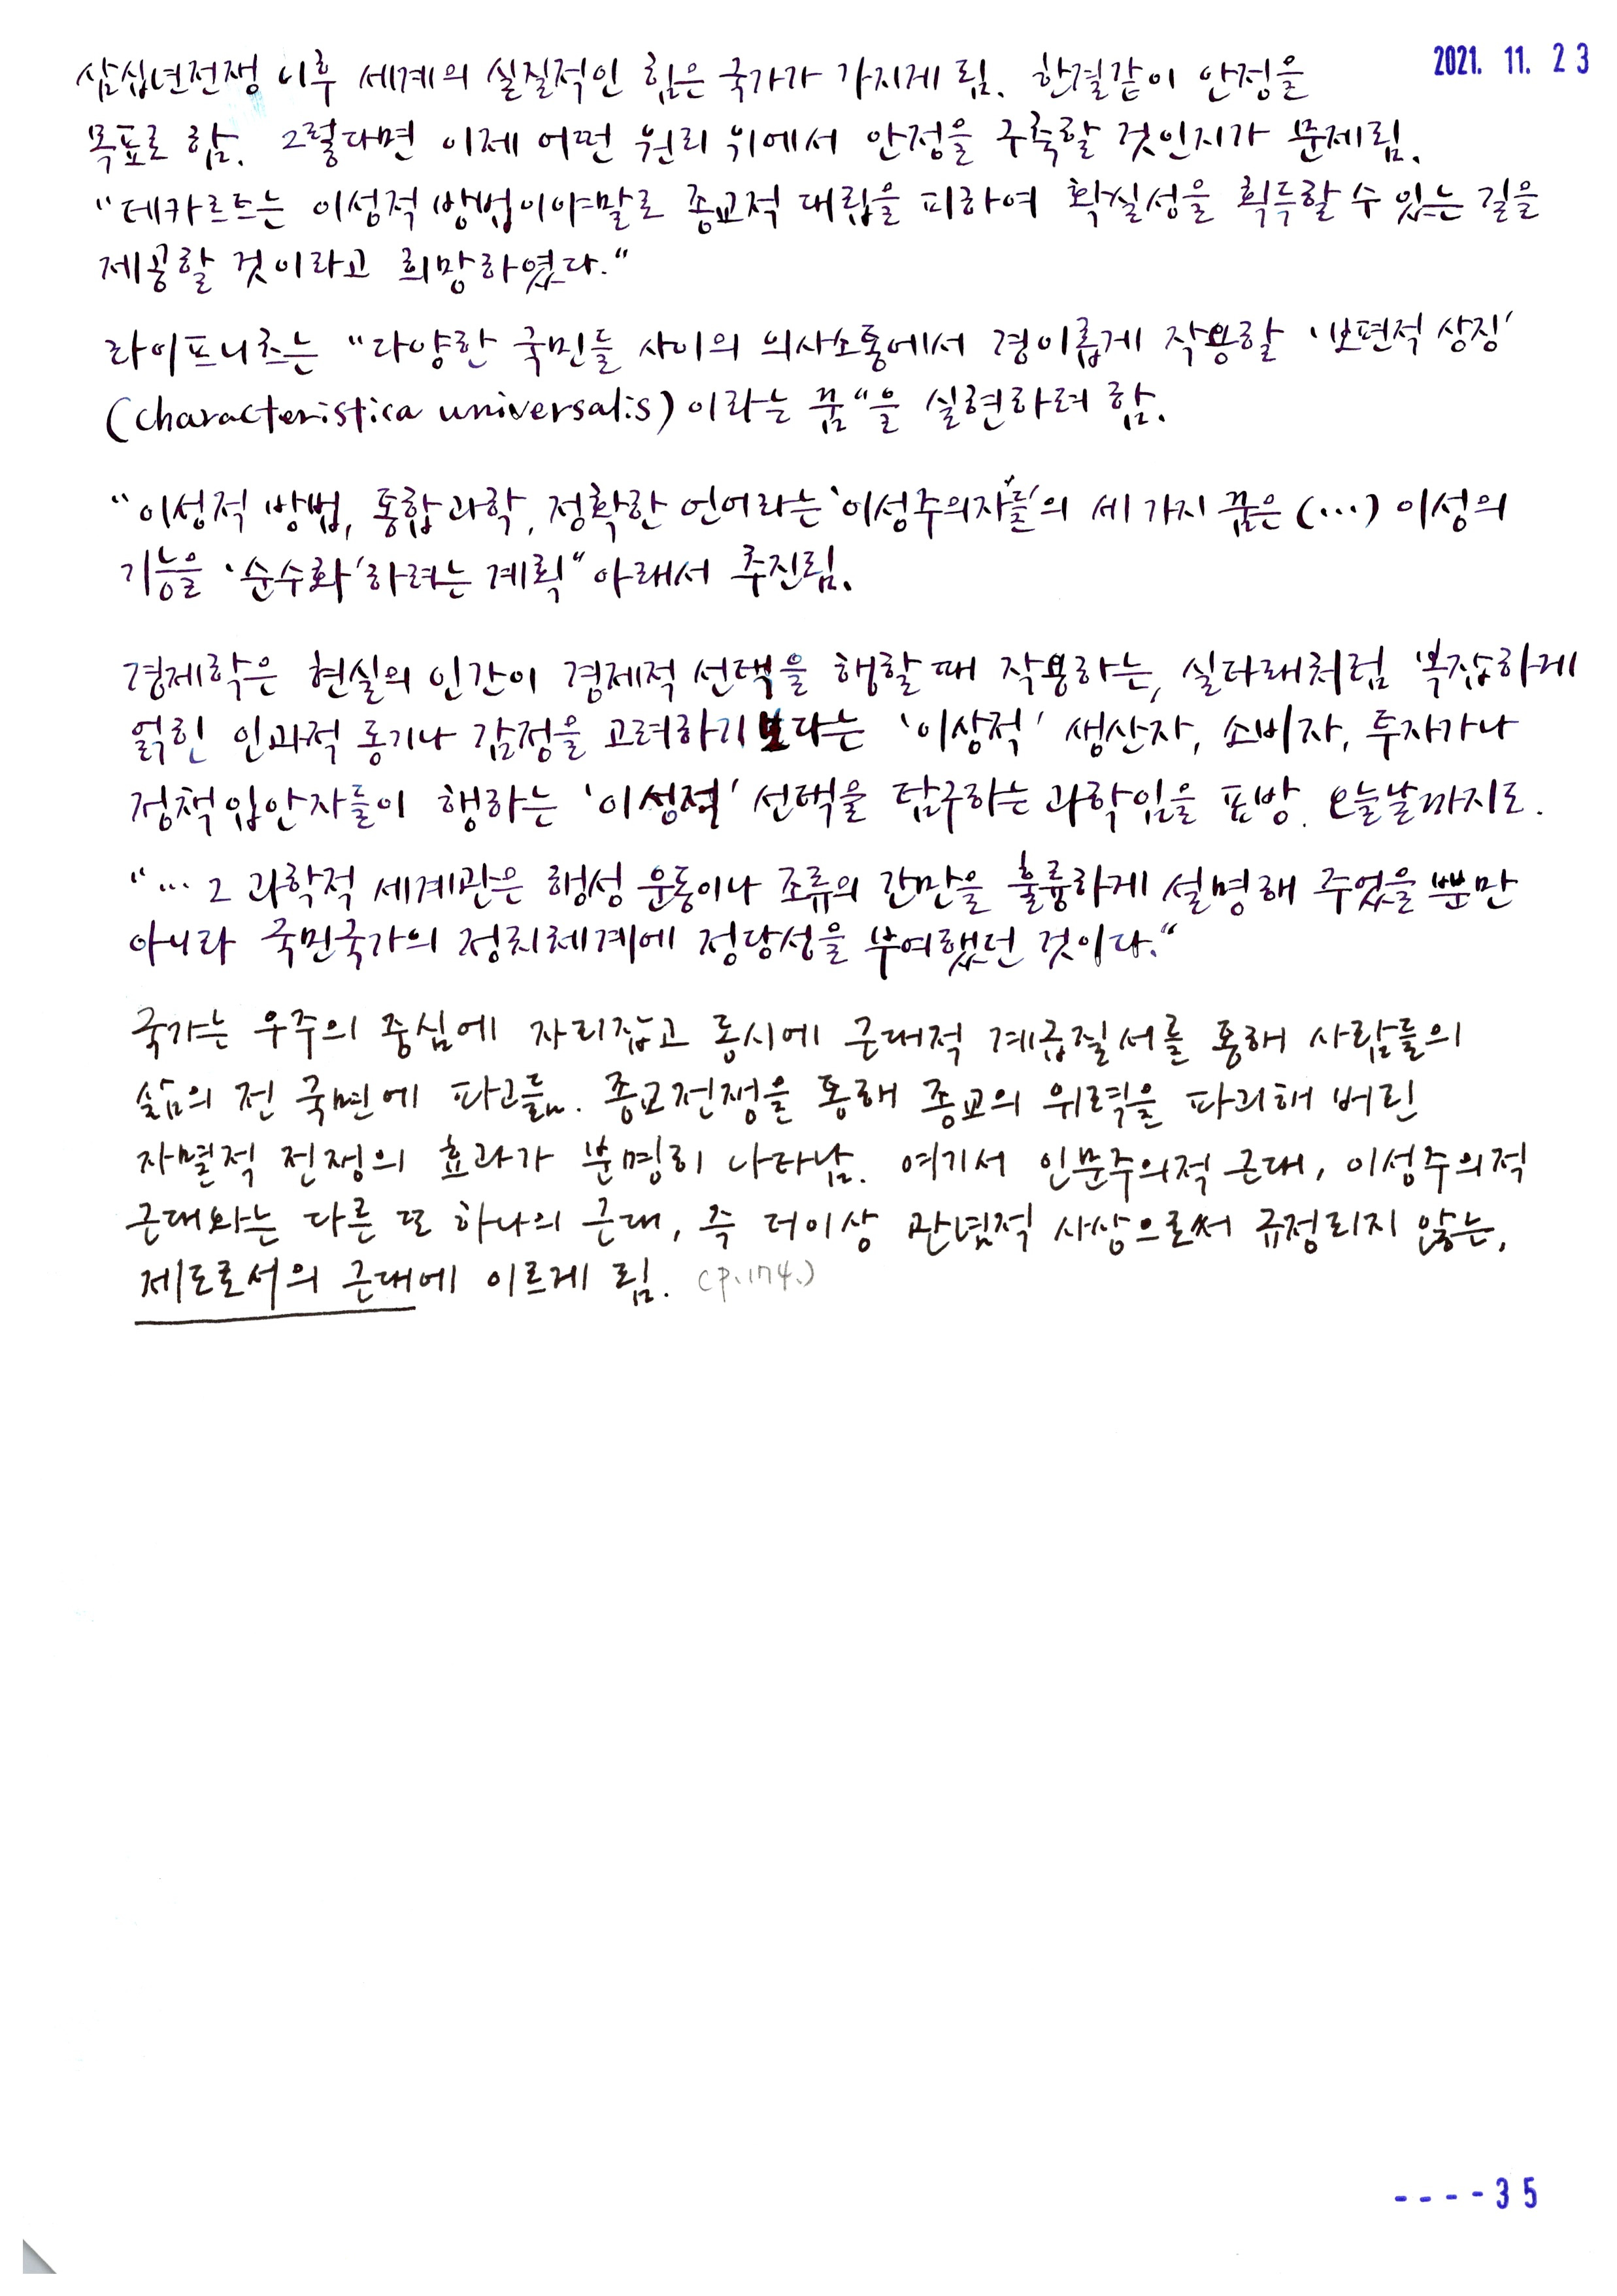 2021. 11. 23
삼십년전쟁 이후 세계의 실질적인 힘은 국가가 가지게 됨. 한결같이 안정을
목표로 함. 그렇다면 이제 어떤 원리 위에서 안정을 구축할 것인지가 문제됨.
"데카르트는 이성적 방법이야말로 종교적 대립을 피하여 확실성을 획득할 수 있는 길을
제공할 것이라고 희망하였다."
라이프니츠는 "다양한 국민들 사이의 의사소통에서 경이롭게 작용할 '보편적 상징'
(characteristica universalis)이라는 꿈"을 실현하려 함.
"이성적 방법, 통합과학, 정확한 언어라는 '이성주의자들'의 세 가지 꿈은 (...) 이성의
기능을 '순수화'하려는 계획" 아래서 추진됨.
경제학은 현실의 인간이 경제적 선택을 행할 때 작용하는, 실타래처럼 복잡하게
얽힌 인과적 동기나 감정을 고려하기보다는 '이상적' 생산자, 소비자, 투자가나
정책입안자들이 행하는 '이성적' 선택을 탐구하는 과학임을 표방. 오늘날까지도.
"... 그 과학적 세계관은 행성 운동이나 조류의 간만을 훌륭하게 설명해 주었을 뿐만
아니라 국민국가의 정치체계에 정당성을 부여했던 것이다."
국가는 우주의 중심에 자리잡고 동시에 근대적 계급질서를 통해 사람들의
삶의 전 국면에 파고듦. 종교전쟁을 통해 종교의 위력을 파괴해 버린
자멸적 전쟁의 효과가 분명히 나타남. 여기서 인문주의적 근대, 이성주의적
근대와는 다른 또 하나의 근대, 즉 더이상 관념적 사상으로써 규정되지 않는,
제도로서의 근대에 이르게 됨. (p.174.)
----35